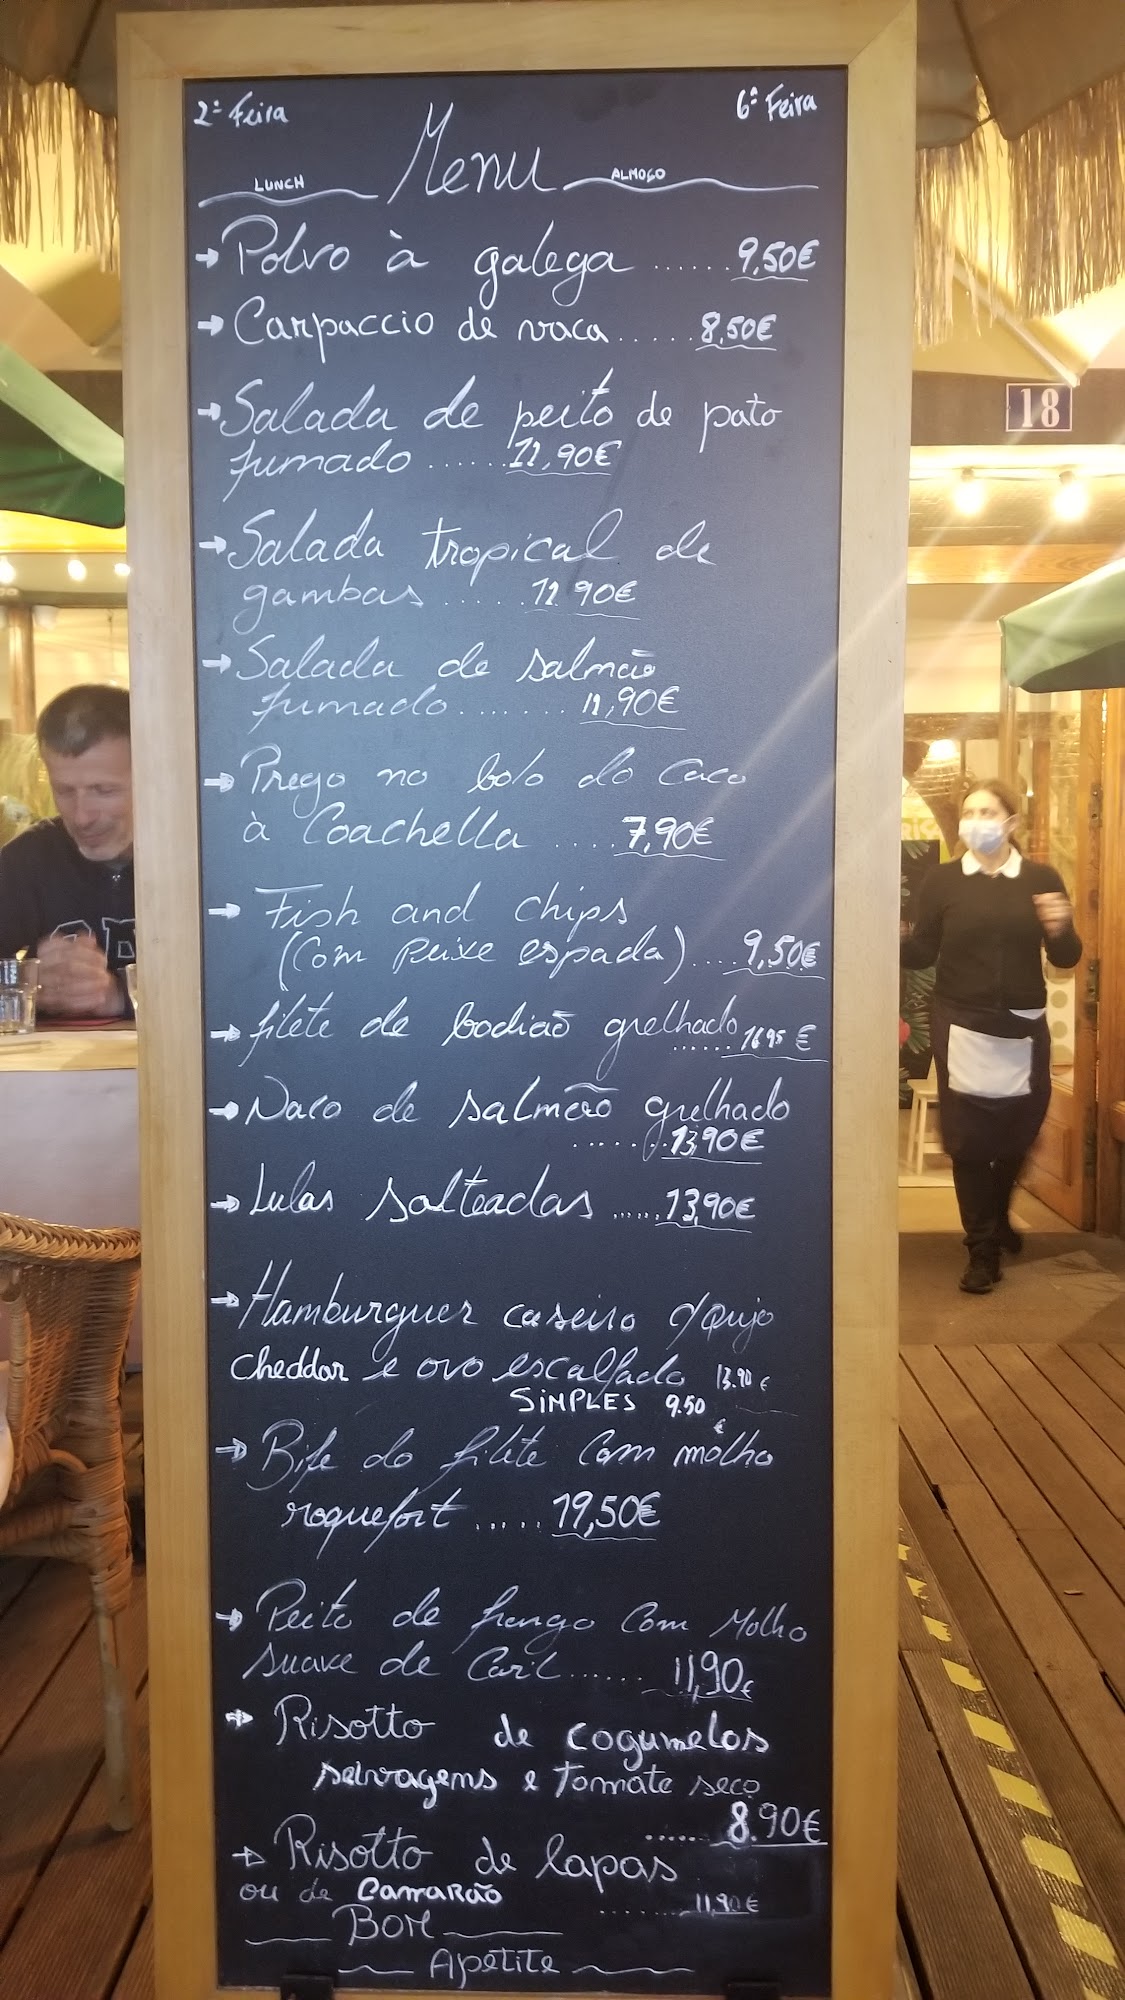 2ª Feira 6ª Feira
LUNCH Menu ALMOÇO
→ Polvo à galega ...... 9,50€
→ Carpaccio de vaca ..... 8,50€
→ Salada de peito de pato
fumado ...... 11,90€
→ Salada tropical de
gambas ..... 11.90€
→ Salada de salmão
fumado ....... 11,90€
→ Prego no bolo do caco
à Coachella .... 7,90€
→ Fish and chips
(Com peixe espada) .... 9,50€
→ filete de bodião grelhado ...... 16.95 €
→ Naco de salmão grelhado
...... 13,90€
→ Lulas salteadas ...... 13,90€
→ Hamburguer caseiro c/queijo
cheddar e ovo escalfado 13.90 €
SIMPLES 9.50 €
→ Bife do filete Com mólho
roquefort ..... 19,50€
→ Peito de frango Com Molho
suave de Caril ...... 11,90€
→ Risotto de cogumelos
selvagens e Tomate seco
...... 8.90€
→ Risotto de lapas
ou de Camarão ...... 11,90€
BOM
Apetite
18